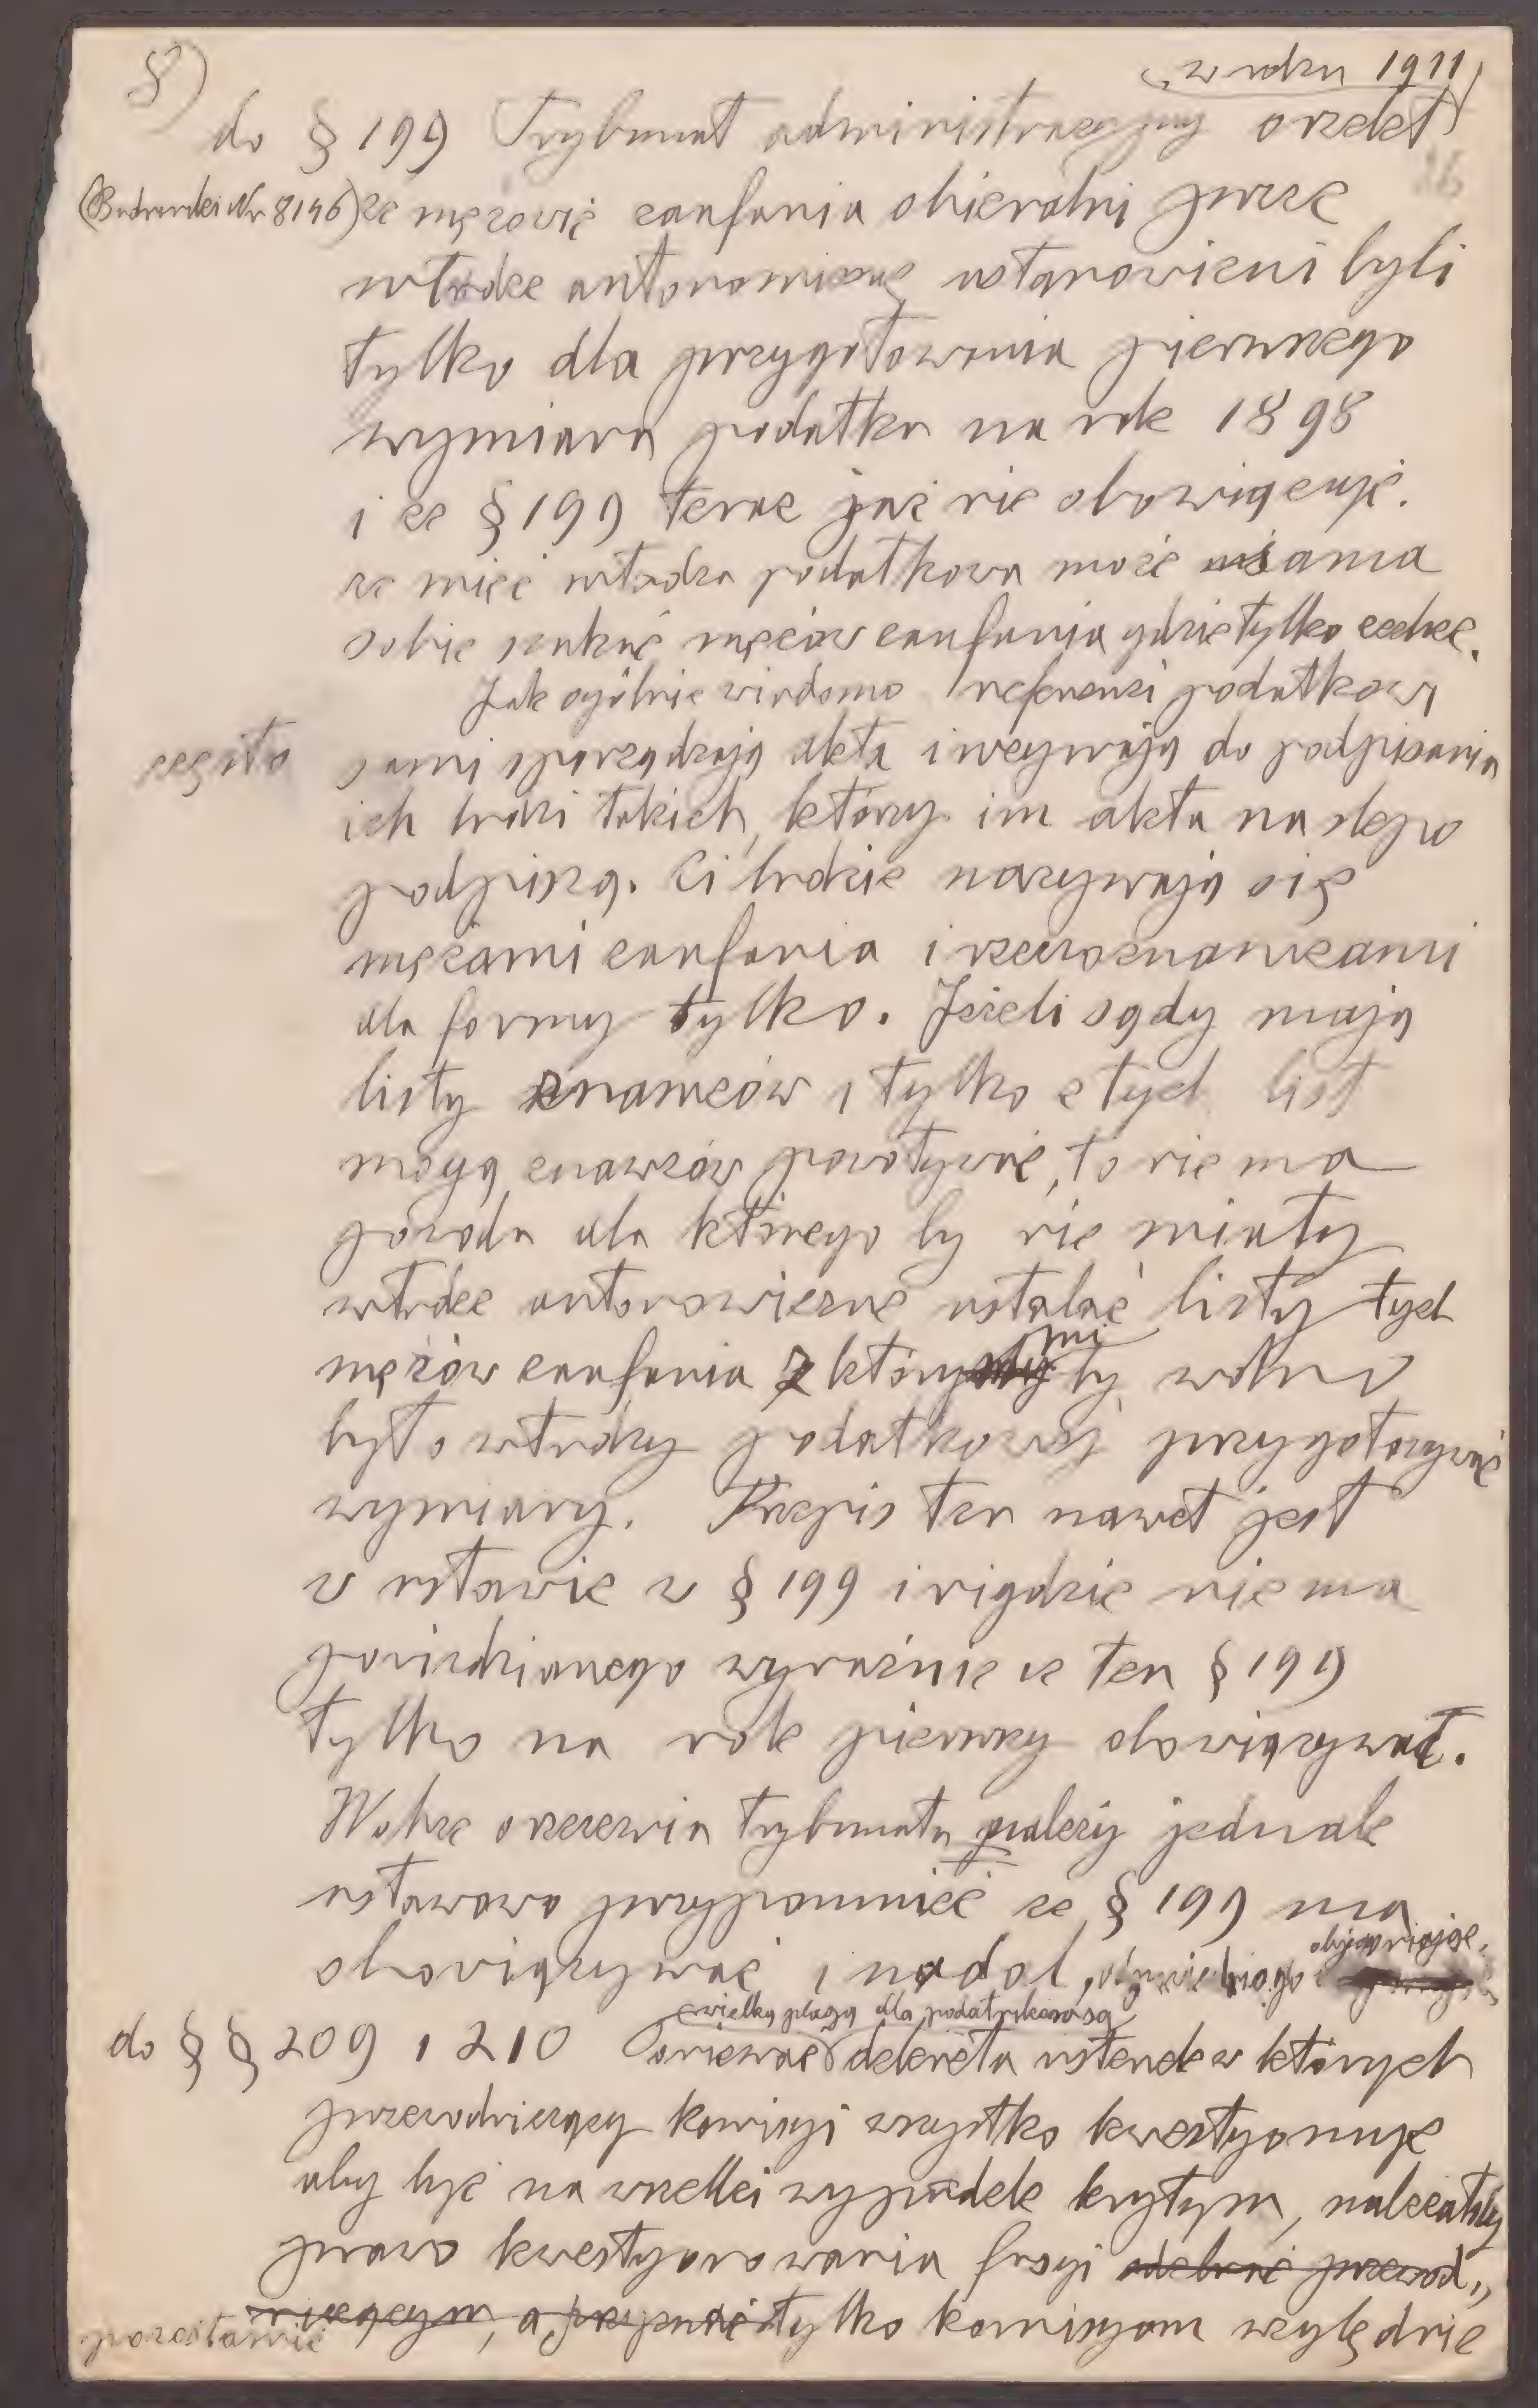 8)
w roku 1911
do § 199 Trybunał administracyjny orzekł
(Budwiński Nr 8146) że mężowie zaufania obieralni przez
władze autonomiczną ustanowieni byli
tylko dla przygotowania pierwszego
wymiaru podatku na rok 1898
i że § 199 teraz już nie obowięzuje.
że więc władza podatkowa może sama
sobie szukać mężów zaufania gdzie tylko zechce.
Jak ogólnie wiadomo referenci podatkowi
często sami sporządzają akta i wzywają do podpisania
ich ludzi takich, którzy im akta na slepo
podpiszą. Ci ludzie nazywają się
mężami zaufania i rzeczoznawcami
dla formy tylko. Jeżeli sądy mają
listy znawców i tylko z tych list
mogą znawców powoływać, to nie ma
powodu dla którego by nie miały
władze autonomiczne ustalać listy tych
mężów zaufania z którymi by wolno
było władzy podatkowej przygotowywać
wymiary. Przepis ten nawet jest
w ustawie w § 199 i nigdzie nie ma
powiedzianego wyraźnie że ten § 199
tylko na rok pierwszy obowiązywał.
Wobec orzeczenia trybunału należy jednak
ustawowo przypomnieć że § 199 ma
obowiązywać i nadal, objaśniając
do § § 209 i 210 Ponieważ wielką plagą dla podatników są dekreta usterek w których
przewodniczący komisyi wszystko kwestyonuje
aby być na wszelki wypadek krytym, należałoby
prawo kwestyonowania fasyi odebrać przewod„
niczącym, a przyznać tylko komisyom względnie
pozostawić